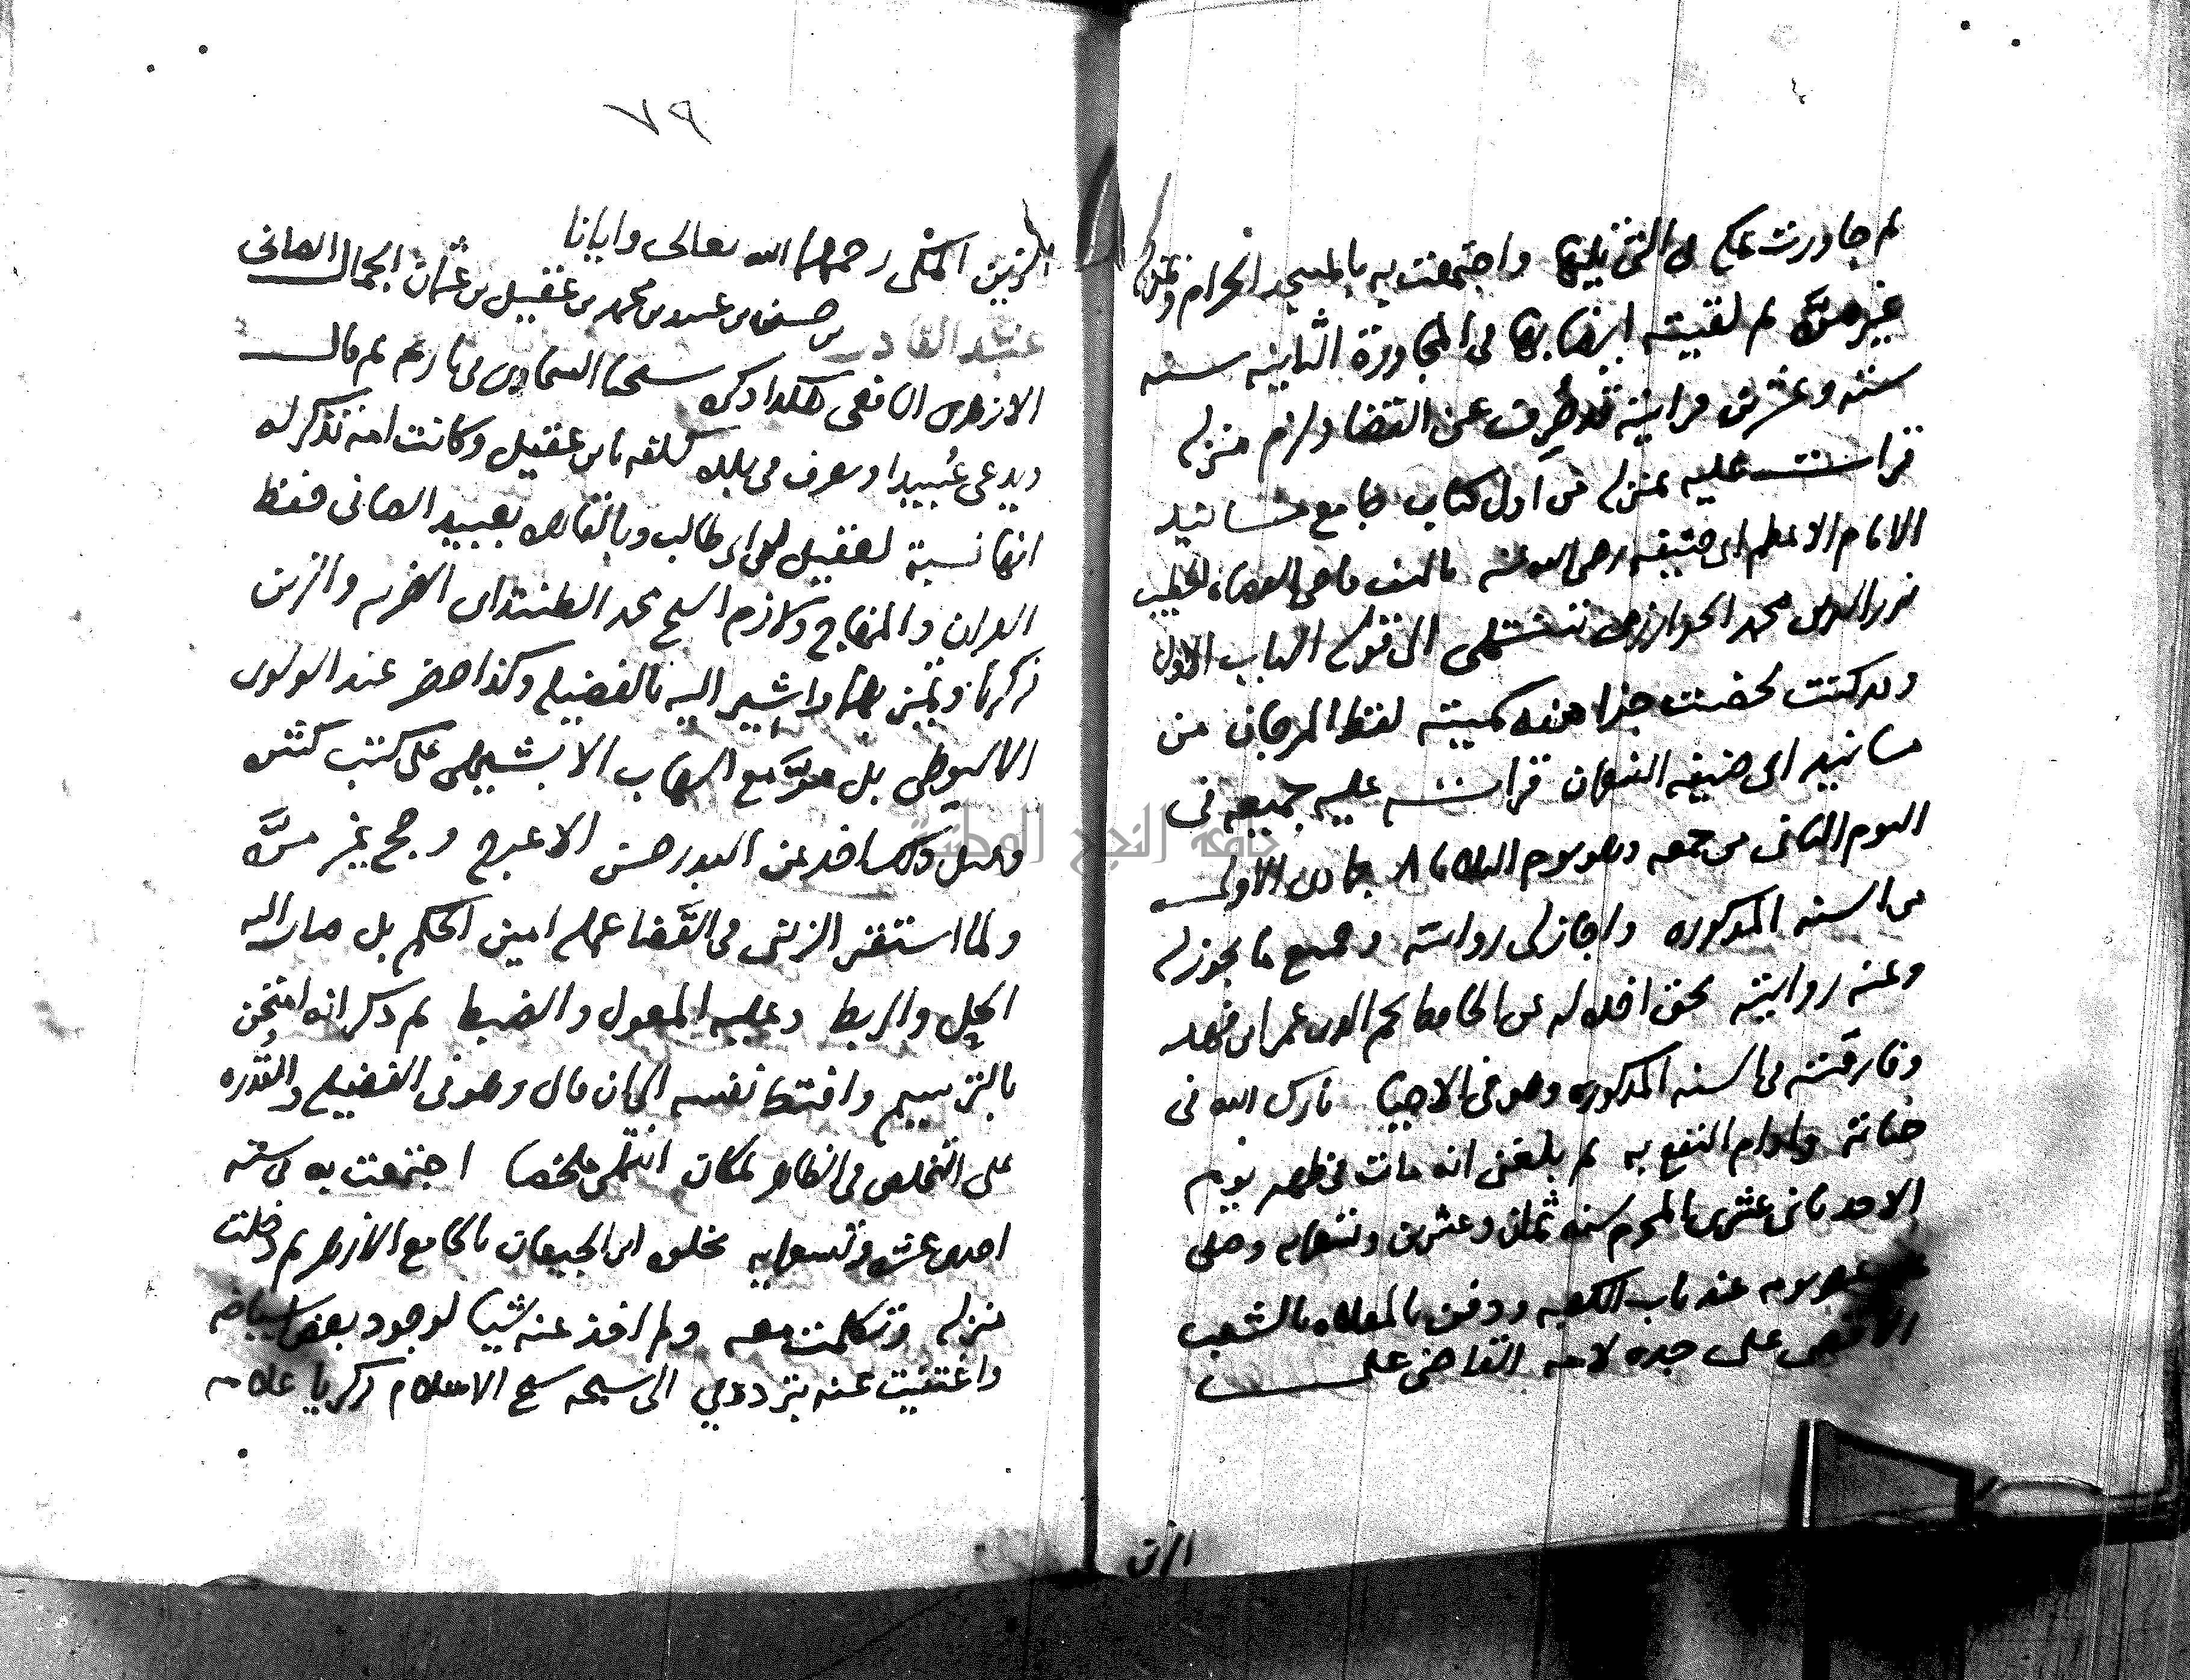 ثم جاورت بمكة في التي تليها واجتمعت به بالمسجد الحرام وبمنزله
غير مرة ثم لقيته ايضا بها في المجاورة الثانية سنه
سته وعشرين فرايته قد صرف عن القضا ولزم منزله
قرات عليه بمنزله من اول كتاب جامع مسانيد
الامام الاعظم ابي حنيفه رضي الله عنه تاليف قاضي القضاه الخطيب
محمد الخوارزمي الى قوله الباب الاول
وقد كنت لخصت جزا منه سميته لقط المرجان من
مسانيد ابي حنيفه النعمان قرات عليه جميعه في
اليوم الثاني من جمعه وهو يوم الثلاثا جمادى الاولى
من السنه المذكوره واجاز لي روايته وجميع ما يجوز له
وعنه روايته بحق اخذه له عن الحافظ نجم الدين عمر ابن فهد
وفارقته في السنه المذكوره وهو في الاحيا بارك الله في
حياته وادام النفع به ثم بلغني انه مات في ظهر يوم
الاحد ثاني عشري المحرم سنه ثمان وعشرين وتسعمايه وصلي
عصر يومه عند باب الكعبه ودفن بالمعلاه بالشعب
الاقصى على جده لامه القاضي علي
الزين
٧٩
الزين المكي رحمهما الله تعالى وايانا
عبد القادر بن حسن بن عبيد بن محمد بن عقيل بن عثمان الجمال الصاني
الازهري الشافعي هكذا ذكره شيخنا السخاوي في تاريخه ثم قال
ويدعى عبيدا ويعرف في بلده كسلفه بابن عقيل وكانت امه تذكر له
انها نسبة لعقيل بن ابي طالب وبالقاهره بعبيد الصاني حفظ
القران والمنهاج ولازم الشيخ محمد الطنتداي الضرير والزين
زكريا وتميز بهما واشير اليه بالفضيله وكذا حضر عند الولوي
الاسيوطي بل هو مع الشهاب الابشيهي على كتب كتبه
وقبل ذلك اخذ عن البدر حسن الاعرج وحج غير مرة
ولما استقر الزيني في القضا عمله امين الحكم بل صار اليه
الحل والربط وعليه المعول والضبط ثم ذكر انه امتحن
بالترسيم وافتكا نفسه الى ان قال وهو في الفضيله والقدره
على التخلص في الظاهر بمكان انتهى ملخصا اجتمعت به في سنة
احدى عشرة وتسعمايه بخلوه ابن الجيعان بالجامع الازهر ثم دخلت
منزله وتكلمت معه ولم اخذ عنه شيا لوجود بعض اشياخه
واغتنيت عنه بترددي الى شيخه شيخ الاسلام زكريا علامه
جامعة النجاح الوطنية